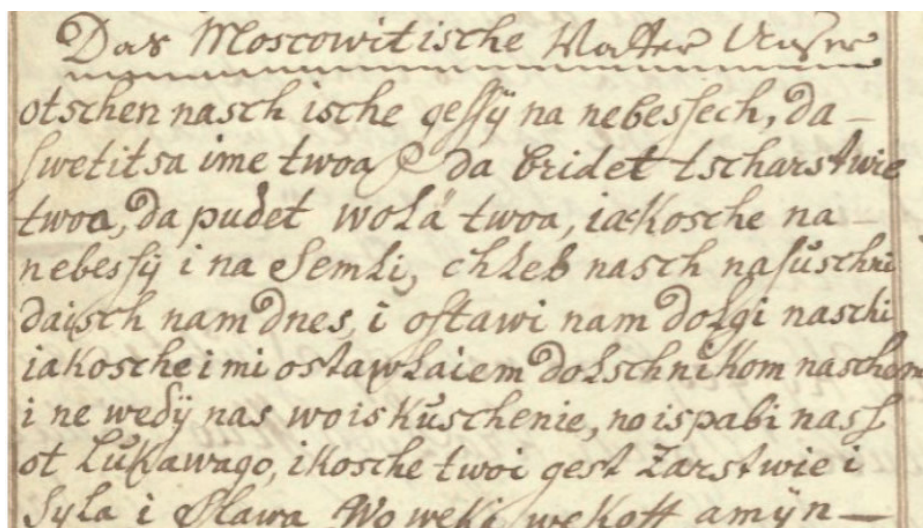 Das Moscowitische Vatter Unser
otschen nasch ische gessÿ na nebessech, da –
swetitsa ime twoa & da bridet tscharstwie
twoa, da pudet wolä twoa, iakosche na –
nebessÿ i na Semli, chleb nasch nasuschni
daisch nam dnes, i ostawi nam dolgi naschi
iakosche i mi ostawlaiem dolschnikom naschem
i ne wedÿ nas wo iskuschenie, no ispabi nass
ot lukawago, ikosche twoi gest Zarstwie i
Syla i Slawa Wo weki wekoff amÿn –